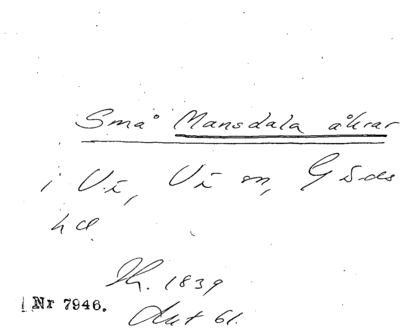 Små Mansdala åkrar
i Vi, Vi sn, Göds
hd
Nr 7946.
Akt 61.
1839